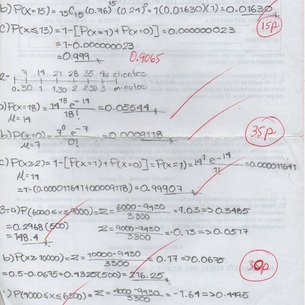 b) P(x=15) = 15C15 (0.76)^15 (0.24)^0 = 1(0.01630)(1) = 0.01630
c) P(x≤13) = 1-[P(x=1)+P(x=0)] = 0.000000023
= 1-0.000000023
= 0.999
0.9065
15p
2-
7 14 21 28 35 clientes
0.30 1 1.30 2 2.30 3 minutos
P(x=18) = 14^18 e^-14 / 18! = 0.05544
μ=14
b) P(x=0) = 7^0 e^-7 / 0! = 0.0009118
μ=7
35p
c) P(x≥2) = 1-[P(x=1)+P(x=0)] - P(x=1) = 14^1 e^-14 / 1! = 0.000011641
μ=14
= 1-(0.000011641+0.0009118) = 0.99907
3-a) P(6000≤x≤9000) = Z = 6000-9430 / 3300 = -1.03 => 0.3485
= 0.2968(500) = Z = 9000-9430 / 3300 = -0.13 => 0.0517
148.4
30p
b) P(x≥10000) = Z = 10000-9430 / 3300 = 0.17 => 0.0675
= 0.5-0.0675 = 0.4325(500) = 216.25
P(4000≤x≤6200) = Z = 4000-9430 / 3300 = -1.64 => 0.4495